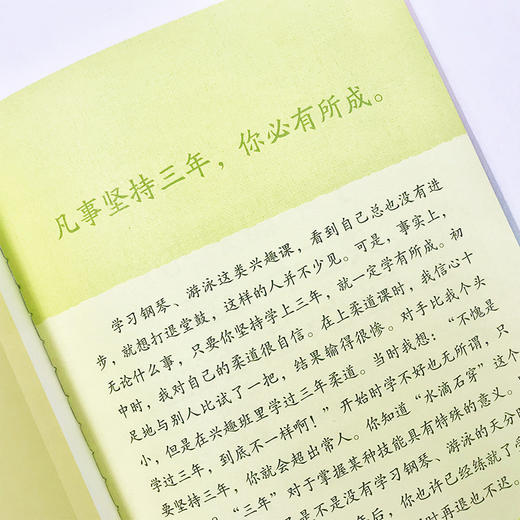 凡事坚持三年，你必有所成。
学习钢琴、游泳这类兴趣课，看到自己总也没有进
步，就想打退堂鼓，这样的人并不少见。可是，事实上，
无论什么事，只要你坚持学上三年，就一定学有所成。初
中时，我对自己的柔道很自信。在上柔道课时，我信心十
足地与别人比试了一把，结果输得很惨。对手比我个头
小，但是在兴趣班里学过三年柔道。当时我想：“不愧是
学过三年，到底不一样啊！”开始时学不好也无所谓，只
要坚持三年，你就会超出常人。你知道“水滴石穿”这个
“三年”对于掌握某种技能具有特殊的意义。
是不是没有学习钢琴、游泳的天分
年后，你也许已经练就了
时再退也不迟。